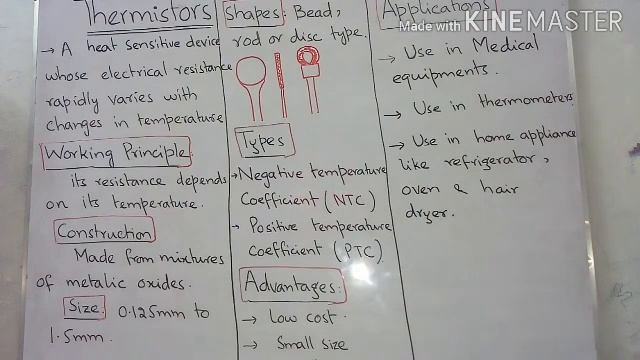 Thermistors
→ A heat sensitive device
whose electrical resistance
rapidly varies with
changes in temperature
Working Principle
its resistance depends
on its temperature.
Construction
Made from mixtures
of metalic oxides.
Size: 0.125mm to
1.5mm.
Shapes: Bead,
rod or disc type.
Types
→ Negative temperature
Coefficient (NTC)
→ Positive temperature
coefficient (PTC)
Advantages:
→ Low cost.
→ Small size
Applications
Made with KINEMASTER
→ Use in Medical
equipments.
→ Use in thermometers
→ Use in home appliance
like refrigerator,
oven & hair
dryer.